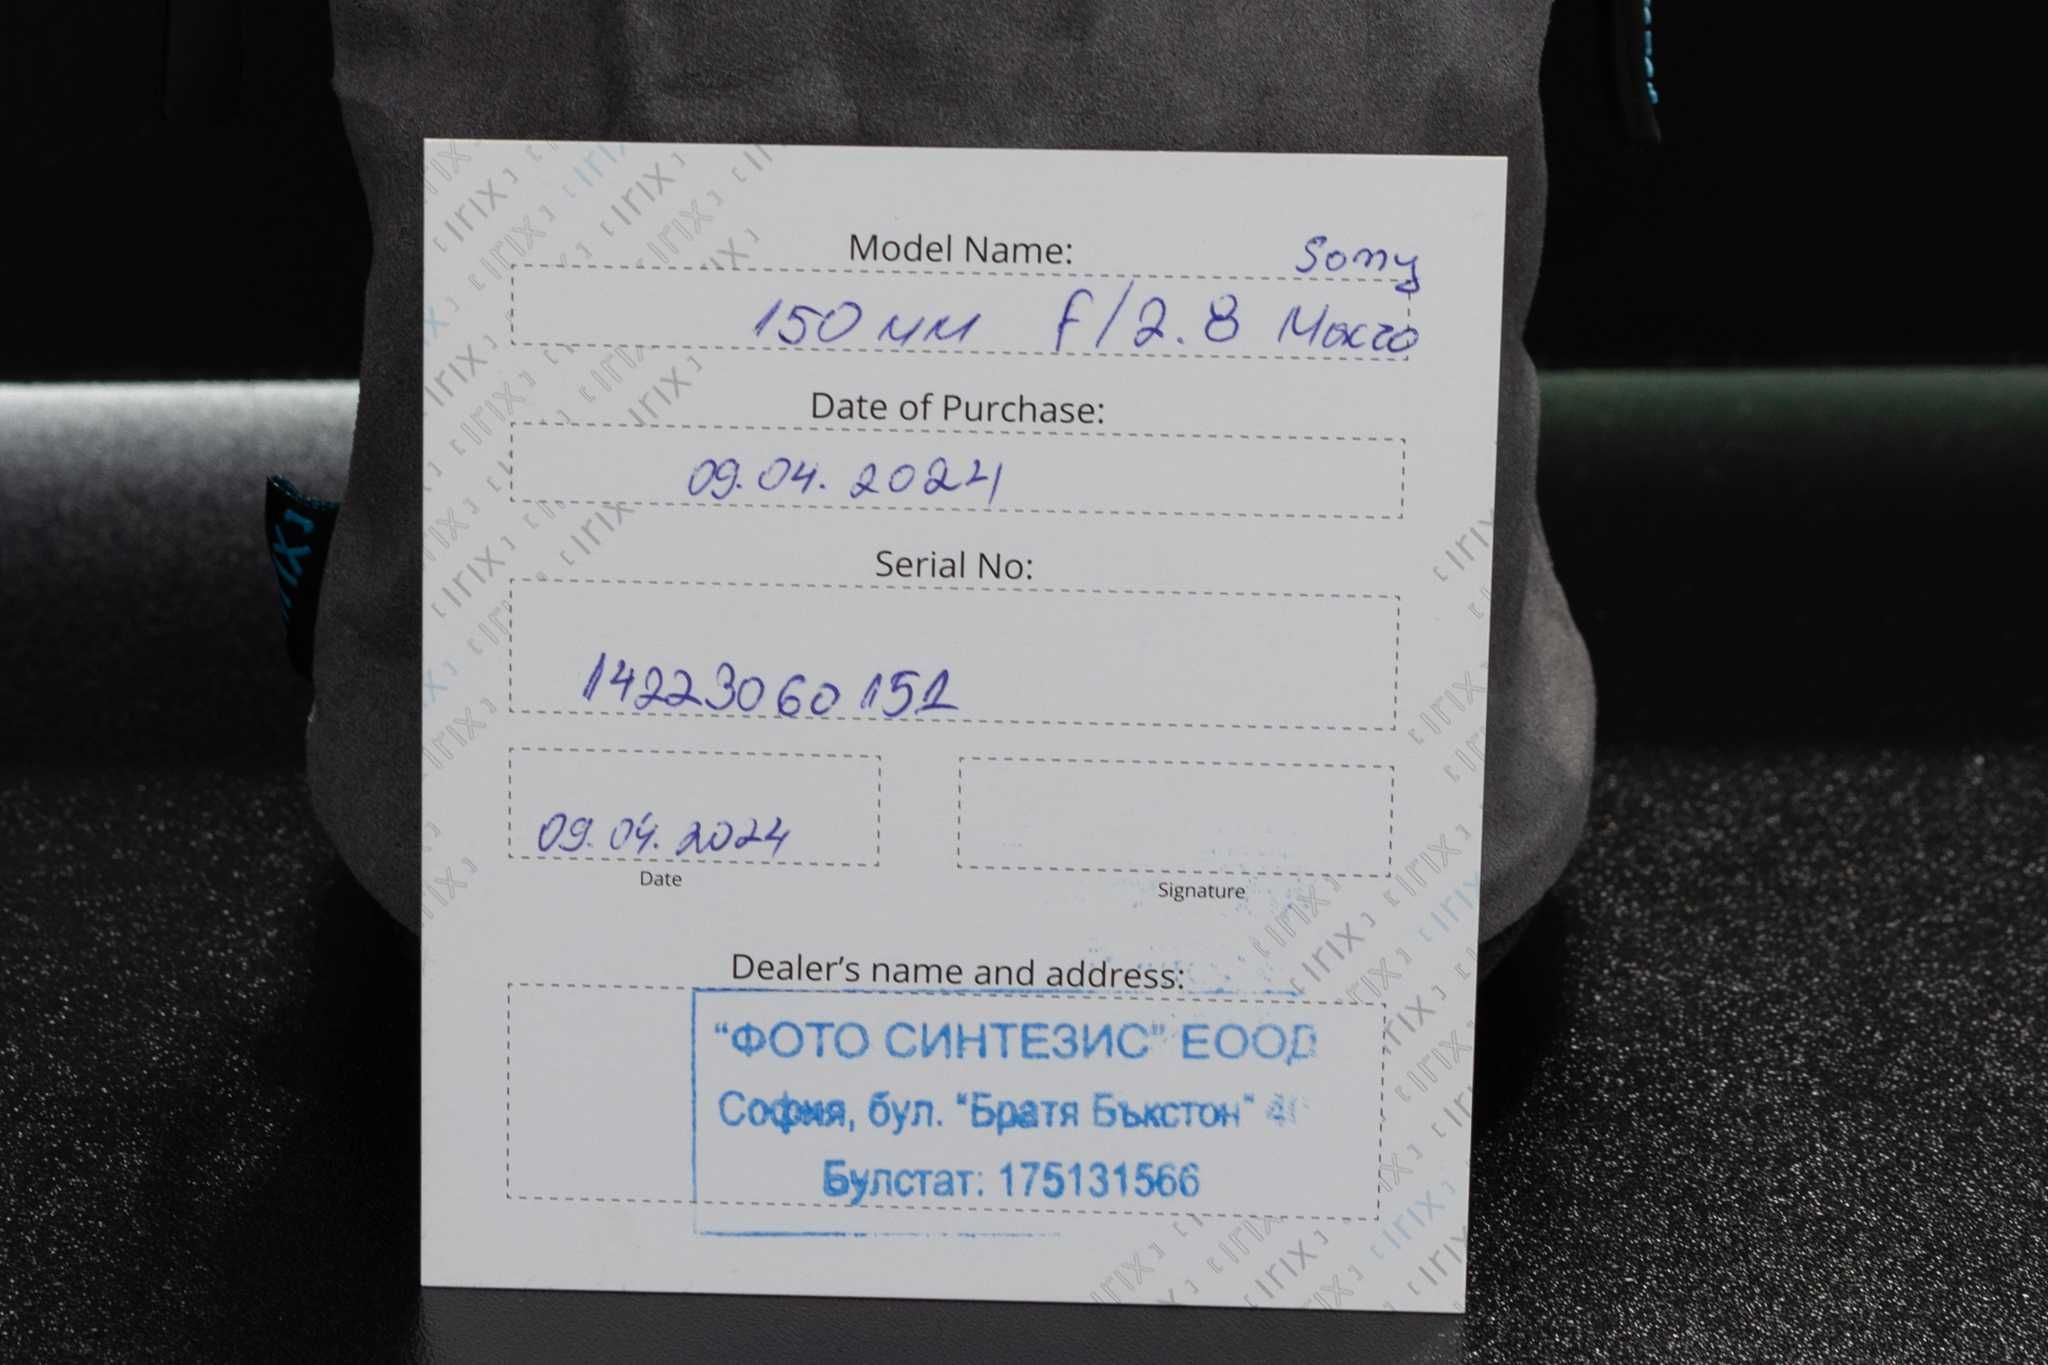 Model Name:
Sony
150 мм f/2.8 Macro
Date of Purchase:
09.04.2024
Serial No:
14223060151
09.04.2024
Date
Signature
Dealer's name and address:
"ФОТО СИНТЕЗИС" ЕООД
София, бул. "Братя Бъкстон"
Булстат: 175131566
IRIX